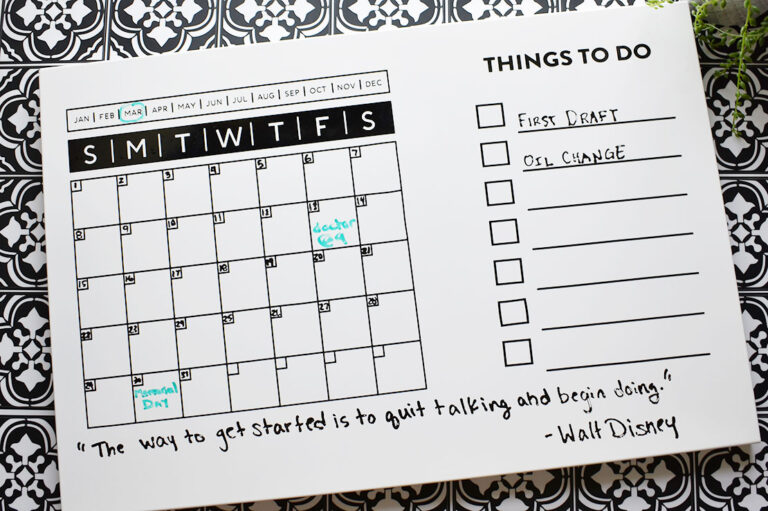 JAN | FEB | MAR | APR | MAY | JUN | JUL | AUG | SEP | OCT | NOV | DEC
S | M | T | W | T | F | S
1 2 3 4 5 6 7
8 9 10 11 12 13 14
doctor
@9
15 16 17 18 19 20 21
22 23 24 25 26 27 28
29 30 31
Memorial
DAY
THINGS TO DO
FIRST DRAFT
OIL CHANGE
"The way to get started is to quit talking and begin doing."
-Walt Disney